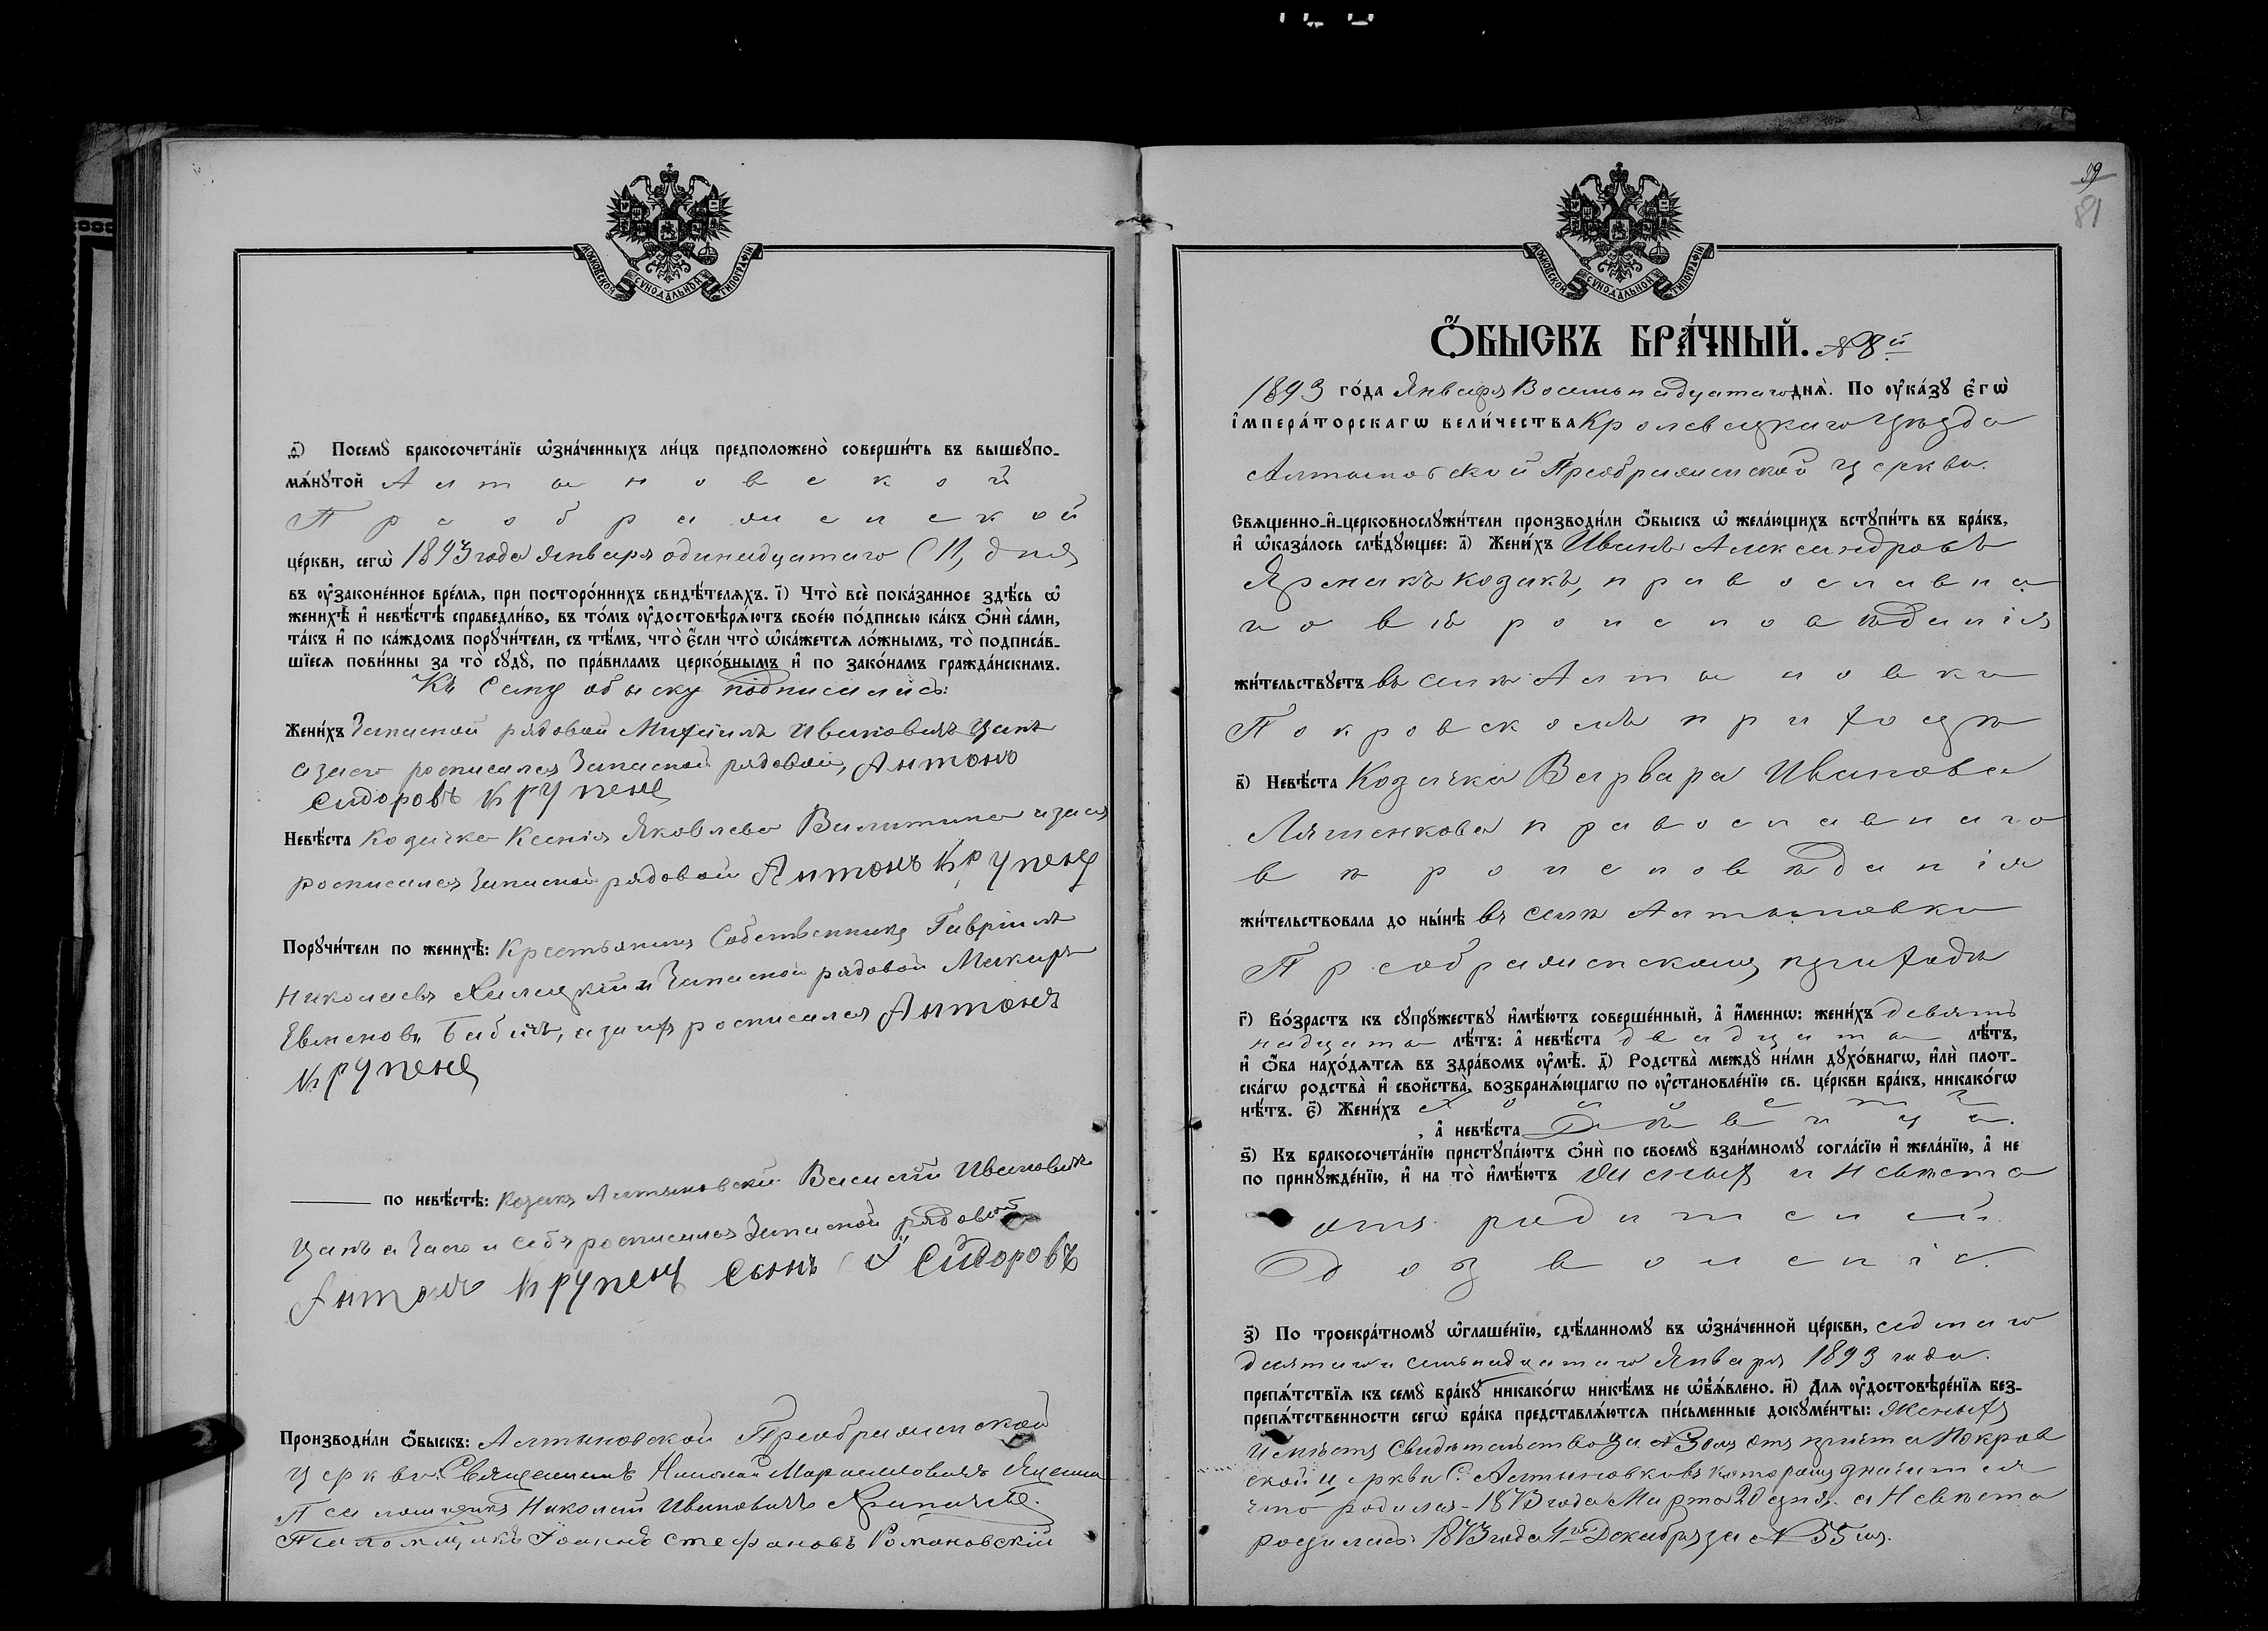 МОСКОВСКОЙ СѴНОДАЛЬНОЙ ТИПОГРАФІИ
ѳ҃) Посемꙋ̀ бракосочета́нїе ѡ҆зна́ченныхъ ли́цъ предположено̀ соверши́ть въ вышеꙋпо-
мѧ́нꙋтой Алтыновской
Преображенской
це́ркви, сегѡ̀ 1893 года Января одинадцатаго (11, дня
въ ᲂу҆зако́ненное вре́мѧ, при посторо́ннихъ свидѣ́телѧхъ. і҃) Что̀ всѐ пока́занное здѣ́сь ѡ҆
женихѣ̀ и҆ невѣ́стѣ справедли́во, въ то́мъ ᲂу҆достовѣрѧ́ютъ свое́ю по́дписью ка́къ ѻ҆нѝ са́ми,
та́къ и҆ по ка́ждомъ порꙋчи́тели, съ тѣ́мъ, что̀ є҆́сли что̀ ѡ҆ка́жетсѧ ло́жнымъ, то̀ подписа́в-
шїесѧ пови́нны за то̀ сꙋдꙋ̀, по пра́виламъ церко́внымъ и҆ по зако́намъ гражда́нскимъ.
Къ сему обыску подписались:
Жени́хъ Запасной рядовой Михаилъ Ивановичъ Цапъ
а за его росписался Запасной рядовой, Антонъ
Сидоровъ Крупеня
Невѣ́ста Козачка Ксенія Яковлева Валитина а за ея
росписался Запасной рядовой Антонъ Крупеня
Порꙋчи́тели по женихѣ̀: Крестьянинъ Собственникъ Гавріилъ
Николаевъ и Запасной рядовой Макаръ
Евменовъ Бабичъ, а за ихъ росписался Антонъ
Крупеня
по невѣ́стѣ: Козакъ Алтыновскій Василій Ивановичъ
Цапъ а за его и себя росписался Запасной рядовой
Антонъ Крупеня сынъ Сидоровъ
Производи́ли ѻ҆́быскъ: Алтыновской Преображенской
церкви: Священникъ Николай Яценко
Псаломщикъ Николай Ивановичъ
Псаломщикъ Іоаннъ Стефановъ Романовскій
59
81
МОСКОВСКОЙ СѴНОДАЛЬНОЙ ТИПОГРАФІИ
Ѻ҆́БЫСКЪ БРА́ЧНЫЙ. № 8й
1893 го́да Января Восемнадцатаго днѧ̀. По ᲂу҆ка́зꙋ є҆гѡ̀
і҆мпера́торскагѡ вели́чества Кролевецкаго уѣзда
Алтыновской Преображенской церкви.
Сващенно-и҆-церковнослꙋжи́тели производи́ли ѻ҆́быскъ ѡ҆ жела́ющихъ встꙋпи́ть въ бра́къ,
и҆ ѡ҆каза́лось слѣ́дꙋющее: а҃) Жени́хъ Иванъ Александровъ
Ярмакъ козакъ, православна
го вѣроисповѣданія
жи́тельствꙋетъ въ селѣ Алтыновки
Покровскомъ приходѣ
в҃) Невѣ́ста Козачка Варвара Иванова
Ляшенкова православнаго
вѣроисповѣданія
жи́тельствовала до ны́нѣ въ селѣ Алтыновки
Преображенскомъ приходѣ
г҃) Во́зрастъ къ сꙋпрꙋжествꙋ и҆мѣ́ютъ соверше́нный, а҆ и҆́меннѡ: жени́хъ девять
надцать лѣ́тъ: а҆ невѣ́ста двадцать лѣ́тъ,
и҆ ѻ҆́ба нахо́дѧтсѧ въ здра́вомъ ᲂу҆мѣ̀. д҃) Родства̀ междꙋ̀ ни́ми дꙋхо́внагѡ, и҆лѝ плот-
ска́гѡ родства̀ и҆ свойства̀, возбранѧ́ющагѡ по ᲂу҆становле́нїю св. це́ркви бра́къ, никако́гѡ
нѣ́тъ. є҃) Жени́хъ холостъ
, а҆ невѣ́ста дѣвица.
ѕ҃) Къ бракосочета́нїю пристꙋпа́ютъ ѻ҆нѝ по своемꙋ̀ взаи́мномꙋ согла́сїю и҆ жела́нїю, а҆ не
по принꙋжде́нїю, и҆ на то̀ и҆мѣ́ютъ женихъ и невѣста
отъ родителей
дозволеніе.
з҃) По троекра́тномꙋ ѡ҆глаше́нїю, сдѣ́ланномꙋ въ ѡ҆зна́ченной це́ркви, седмаго
десятаго и семьнадцатаго Января 1893 года.
препѧ́тствїѧ къ семꙋ̀ бра́кꙋ никако́гѡ никѣ́мъ не ѡ҆б̾ѧ́влено. и҃) Длѧ ᲂу҆достовѣре́нїѧ без-
препѧ́тственности сегѡ̀ бра́ка представлѧ́ютсѧ пи́сьменные докꙋме́нты: женихъ
имѣетъ Свидѣтельство за № 3омъ отъ причта Покров
ской церкви С. Алтыновки въ которомъ значится
что родился 1873 года Марта 20 дня. а Невѣста
родилась 1873 года 4го Декабря за № 55мъ.